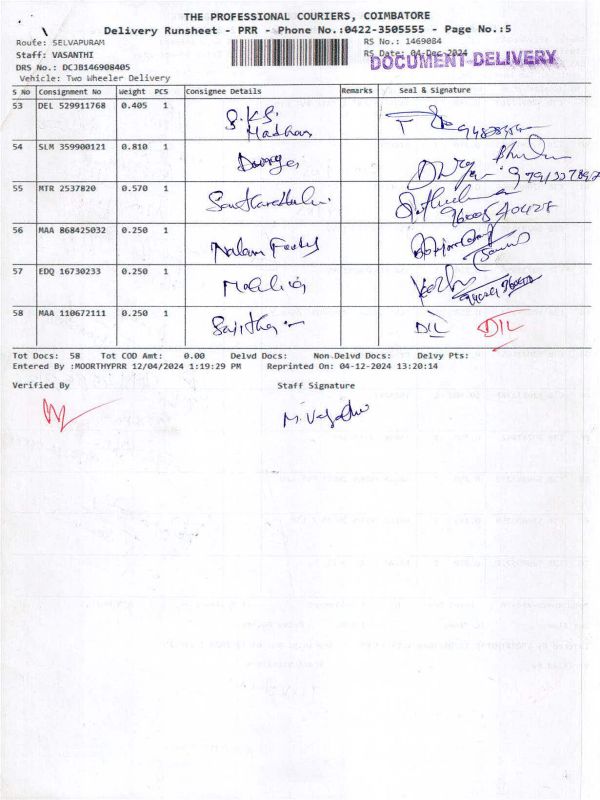 THE PROFESSIONAL COURIERS, COIMBATORE
Delivery Runsheet - PRR - Phone No.:0422-3505555 - Page No.:5
Route: SELVAPURAM
RS No.: 1469084
Staff: VASANTHI
RS Date: 04-Dec-2024
DOCUMENT DELIVERY
DRS No.: DCJB146908405
Vehicle: Two Wheeler Delivery
S No Consignment No Weight PCS Consignee Details Remarks Seal & Signature
53 DEL 529911768 0.405 1 S.K.S. Madhan
54 SLM 359900121 0.810 1 Durga
55 MTR 2537820 0.570 1
56 MAA 868425032 0.250 1 Nalam
57 EDQ 16730233 0.250 1
58 MAA 110672111 0.250 1 D/L D/L
Tot Docs: 58 Tot COD Amt: 0.00 Delvd Docs: Non-Delvd Docs: Delvy Pts:
Entered By :MOORTHYPRR 12/04/2024 1:19:29 PM Reprinted On: 04-12-2024 13:20:14
Verified By Staff Signature